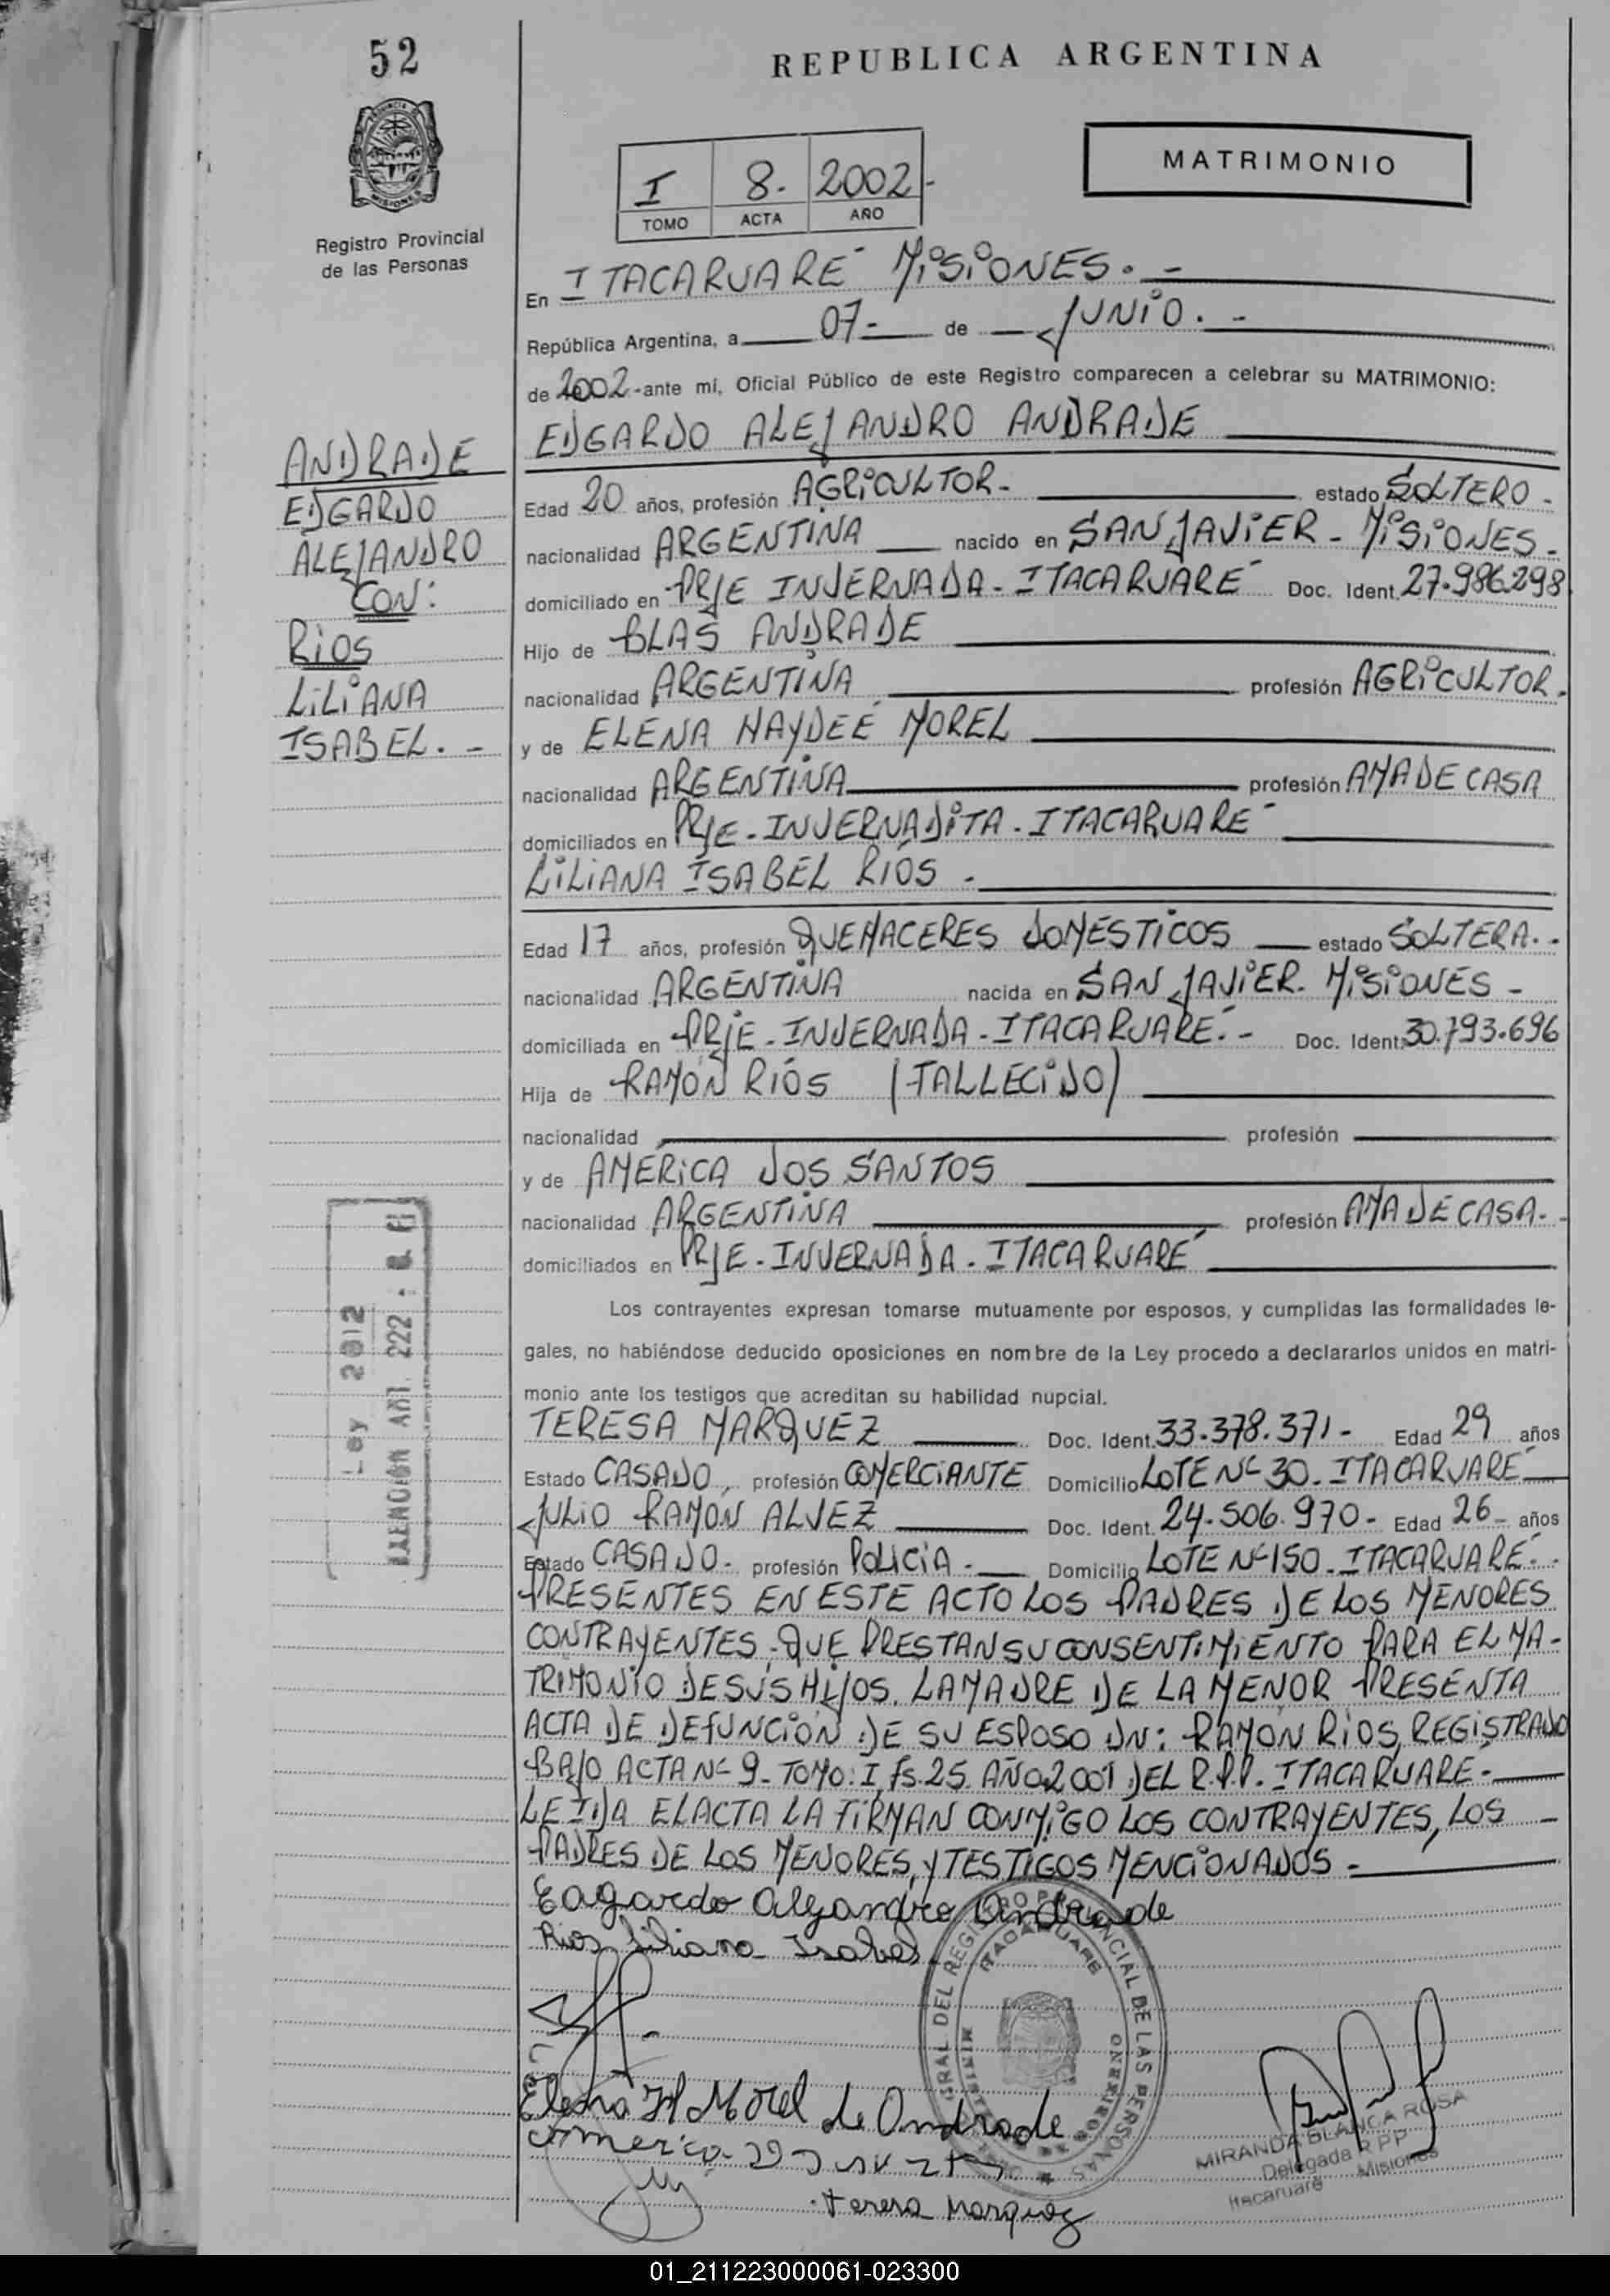 52
REPUBLICA ARGENTINA
MATRIMONIO
I 8. 2002-
TOMO ACTA AÑO
Registro Provincial
de las Personas
En ITACARUARE MISIONES. -
República Argentina, a 07- de JUNIO. -
de 2002-ante mí, Oficial Público de este Registro comparecen a celebrar su MATRIMONIO:
EDGARDO ALEJANDRO ANDRADE
ANDRADE
EDGARDO
ALEJANDRO
CON:
RIOS
LILIANA
ISABEL. -
Edad 20 años, profesión AGRICULTOR- estado SOLTERO-
nacionalidad ARGENTINA nacido en SAN JAVIER - MISIONES-
domiciliado en PRJE INVERNADA - ITACARUARE Doc. Ident. 27.986.298
Hijo de BLAS ANDRADE
nacionalidad ARGENTINA profesión AGRICULTOR.
y de ELENA HAYDEÉ MOREL
nacionalidad ARGENTINA profesión AMA DE CASA
domiciliados en PRJE - INVERNADITA - ITACARUARE
LILIANA ISABEL RIOS -
Edad 17 años, profesión QUEHACERES DOMÉSTICOS estado SOLTERA.-
nacionalidad ARGENTINA nacida en SAN JAVIER- MISIONES -
domiciliada en PRJE - INVERNADA - ITACARUARE.- Doc. Ident. 30.793.696
Hija de RAMÓN RIOS (FALLECIDO)
nacionalidad profesión
y de AMERICA DOS SANTOS
nacionalidad ARGENTINA profesión AMA DE CASA-
domiciliados en PRJE - INVERNADA - ITACARUARE
Los contrayentes expresan tomarse mutuamente por esposos, y cumplidas las formalidades le-
gales, no habiéndose deducido oposiciones en nombre de la Ley procedo a declararlos unidos en matri-
monio ante los testigos que acreditan su habilidad nupcial.
TERESA MARQUEZ Doc. Ident. 33.378.371- Edad 29 años
Estado CASADO, profesión COMERCIANTE Domicilio LOTE Nº 30 - ITACARUARE
JULIO RAMÓN ALVEZ Doc. Ident. 24.506.970- Edad 26- años
Estado CASADO- profesión POLICIA - Domicilio LOTE Nº 150 - ITACARUARE.
PRESENTES EN ESTE ACTO LOS PADRES DE LOS MENORES
CONTRAYENTES, QUE PRESTAN SU CONSENTIMIENTO PARA EL MA-
TRIMONIO DE SUS HIJOS. LA MADRE DE LA MENOR PRESENTA
ACTA DE DEFUNCIÓN DE SU ESPOSO DN: RAMÓN RIOS, REGISTRADO
BAJO ACTA Nº 9- TOMO: I, fs. 25 AÑO 2001 DEL R.P.P. ITACARUARE-
LEIDA EL ACTA LA FIRMAN CONMIGO LOS CONTRAYENTES, LOS -
PADRES DE LOS MENORES, Y TESTIGOS MENCIONADOS -
Ley 2812
EXENCIÓN Art. 222
Edgardo Alejandro Andrade
Rios Liliana Isabel
Elena H Morel de Andrade
America
Teresa Marquez
GRAL DEL REGISTRO PROVINCIAL DE LAS PERSONAS
ITACARUARE
MIRANDA BLANCA ROSA
Delegada R P P
Itacaruaré Misiones
01_211223000061-023300